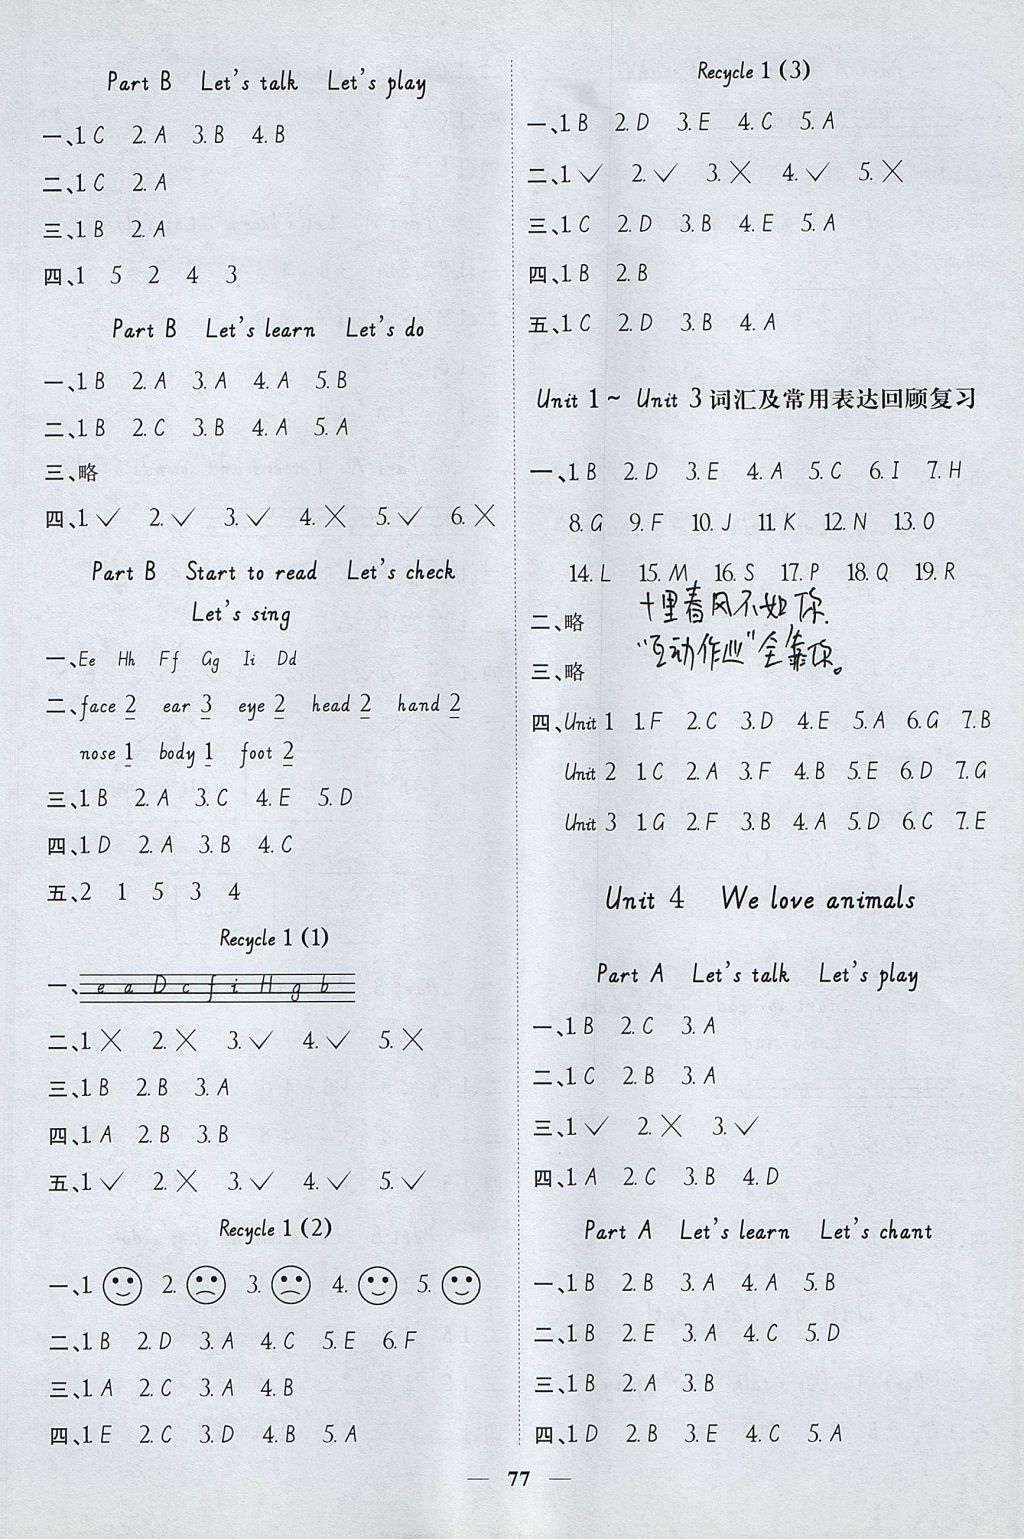 Part B Let's talk Let's play
一、1 C 2. A 3. B 4. B
二、1 C 2. A
三、1 B 2. A
四、1 5 2 4 3
Part B Let's learn Let's do
一、1 B 2. A 3. A 4. A 5. B
二、1 B 2. C 3. B 4. A 5. A
三、略
四、1 ✓ 2. ✓ 3. ✓ 4. ✗ 5. ✓ 6. ✗
Part B Start to read Let's check
Let's sing
一、Ee Hh Ff Gg Ii Dd
二、face 2 ear 3 eye 2 head 2 hand 2
nose 1 body 1 foot 2
三、1 B 2. A 3. C 4. E 5. D
四、1 D 2. A 3. B 4. C
五、2 1 5 3 4
Recycle 1 (1)
一、e a D c f i H g b
二、1 ✗ 2. ✗ 3. ✓ 4. ✓ 5. ✗
三、1 B 2. B 3. A
四、1 A 2. B 3. B
五、1 ✓ 2. ✗ 3. ✓ 4. ✓ 5. ✓
Recycle 1 (2)
一、1 2. 3. 4. 5.
二、1 B 2. D 3. A 4. C 5. E 6. F
三、1 A 2. C 3. A 4. B
四、1 E 2. C 3. D 4. B 5. A
Recycle 1 (3)
一、1 B 2. D 3. E 4. C 5. A
二、1 ✓ 2. ✓ 3. ✗ 4. ✓ 5. ✗
三、1 C 2. D 3. B 4. E 5. A
四、1 B 2. B
五、1 C 2. D 3. B 4. A
Unit 1~ Unit 3 词汇及常用表达回顾复习
一、1 B 2. D 3. E 4. A 5. C 6. I 7. H
8. G 9. F 10. J 11. K 12. N 13. O
14. L 15. M 16. S 17. P 18. Q 19. R
十里春风不如你.
二、略
"互动作业"全靠你。
三、略
四、Unit 1 1. F 2. C 3. D 4. E 5. A 6. G 7. B
Unit 2 1. C 2. A 3. F 4. B 5. E 6. D 7. G
Unit 3 1. G 2. F 3. B 4. A 5. D 6. C 7. E
Unit 4 We love animals
Part A Let's talk Let's play
一、1 B 2. C 3. A
二、1 C 2. B 3. A
三、1 ✓ 2. ✗ 3. ✓
四、1 A 2. C 3. B 4. D
Part A Let's learn Let's chant
一、1 B 2. B 3. A 4. A 5. B
二、1 B 2. E 3. A 4. C 5. D
三、1 B 2. A 3. B
四、1 D 2. B 3. E 4. C 5. A
— 77 —